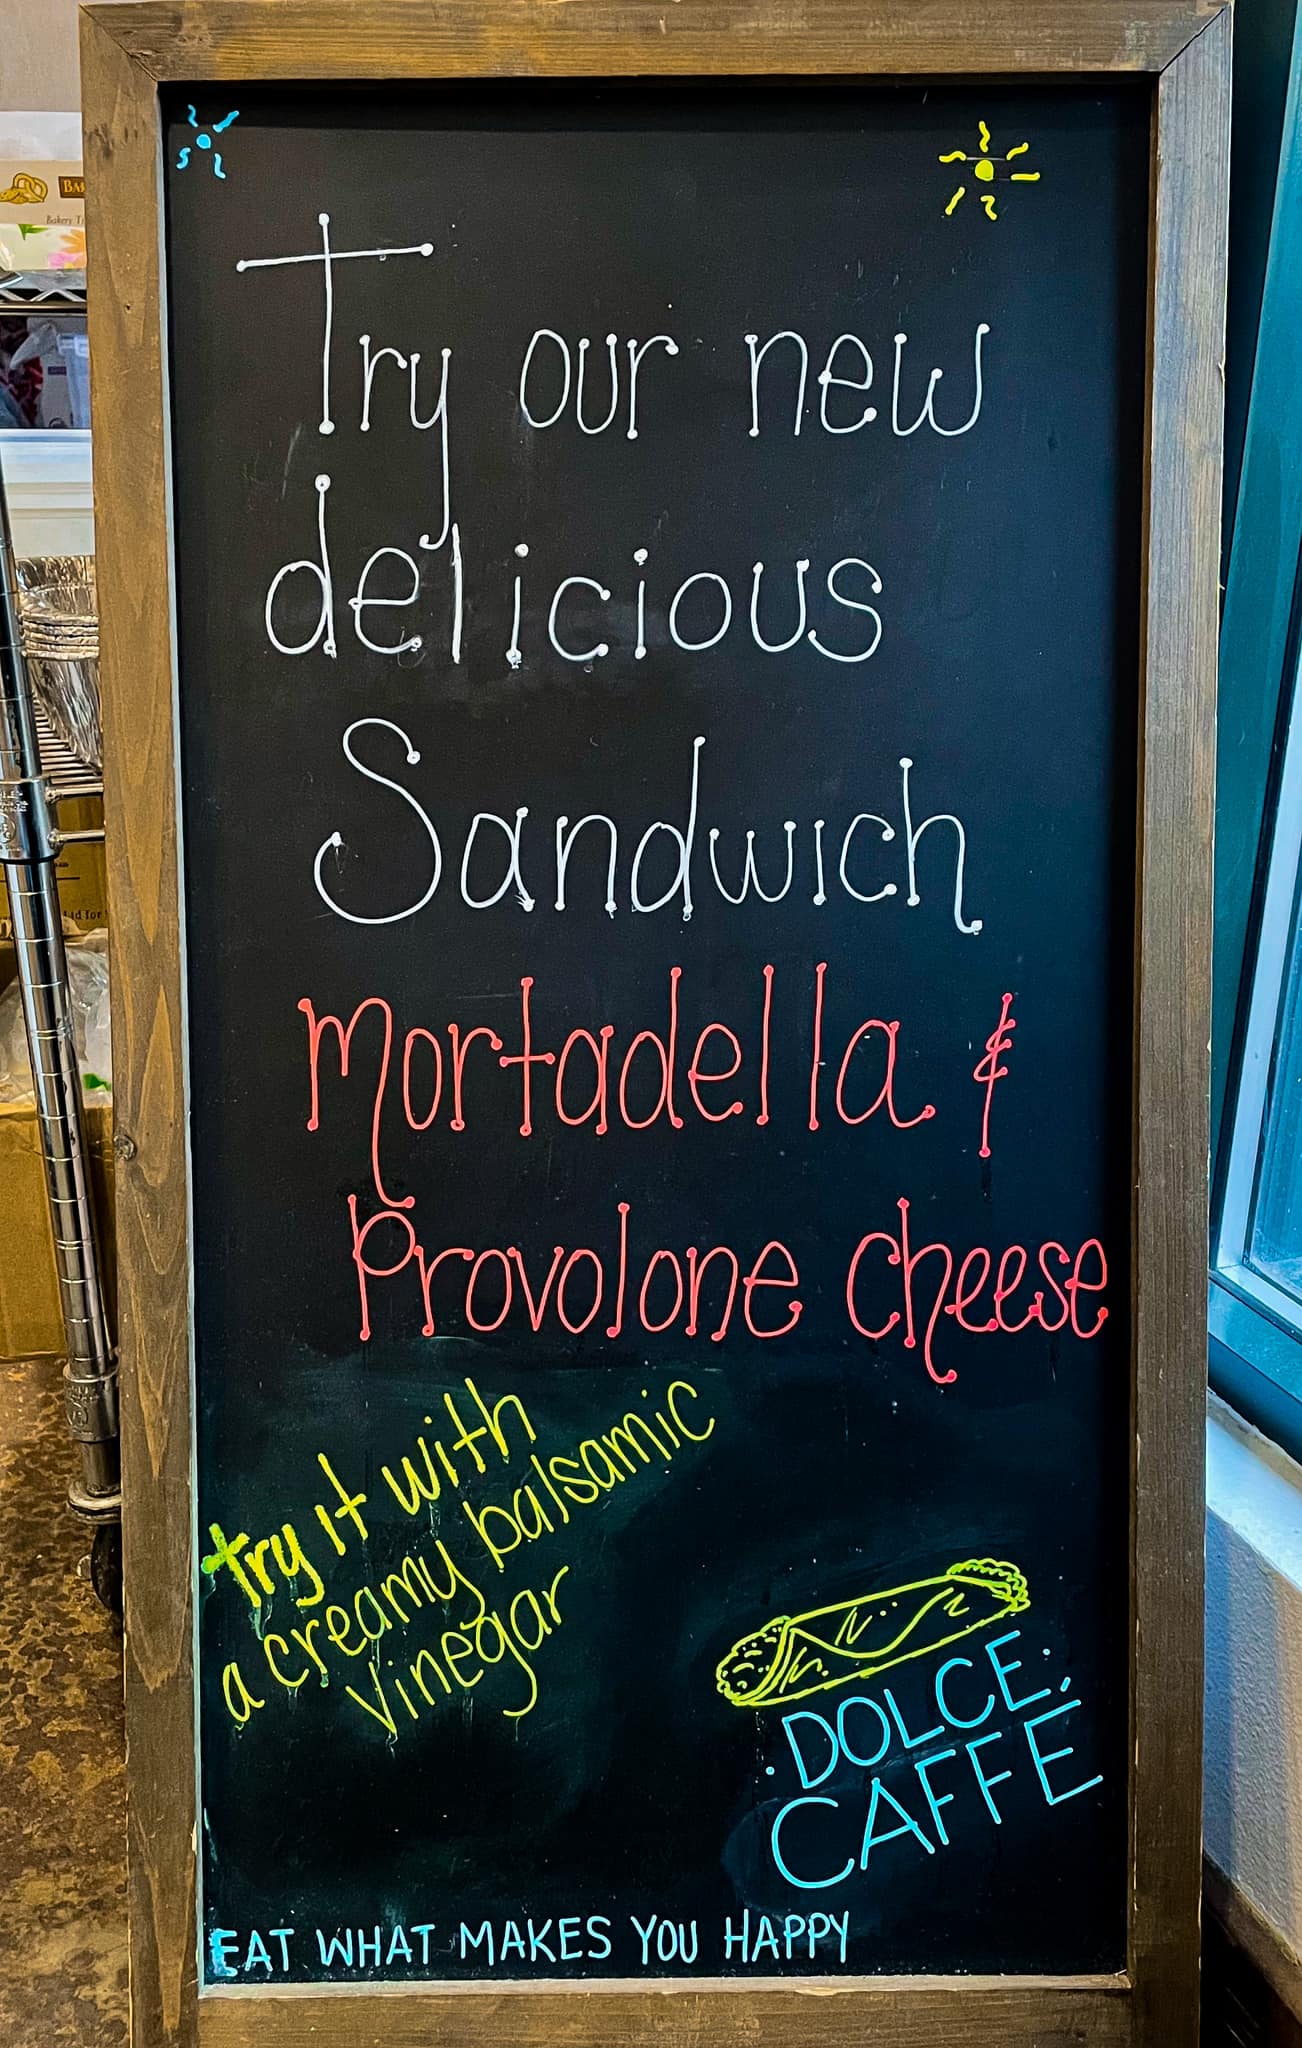 Try our new
delicious
Sandwich
Mortadella &
Provolone cheese
try it with
a creamy balsamic
vinegar
DOLCE
CAFFE
EAT WHAT MAKES YOU HAPPY